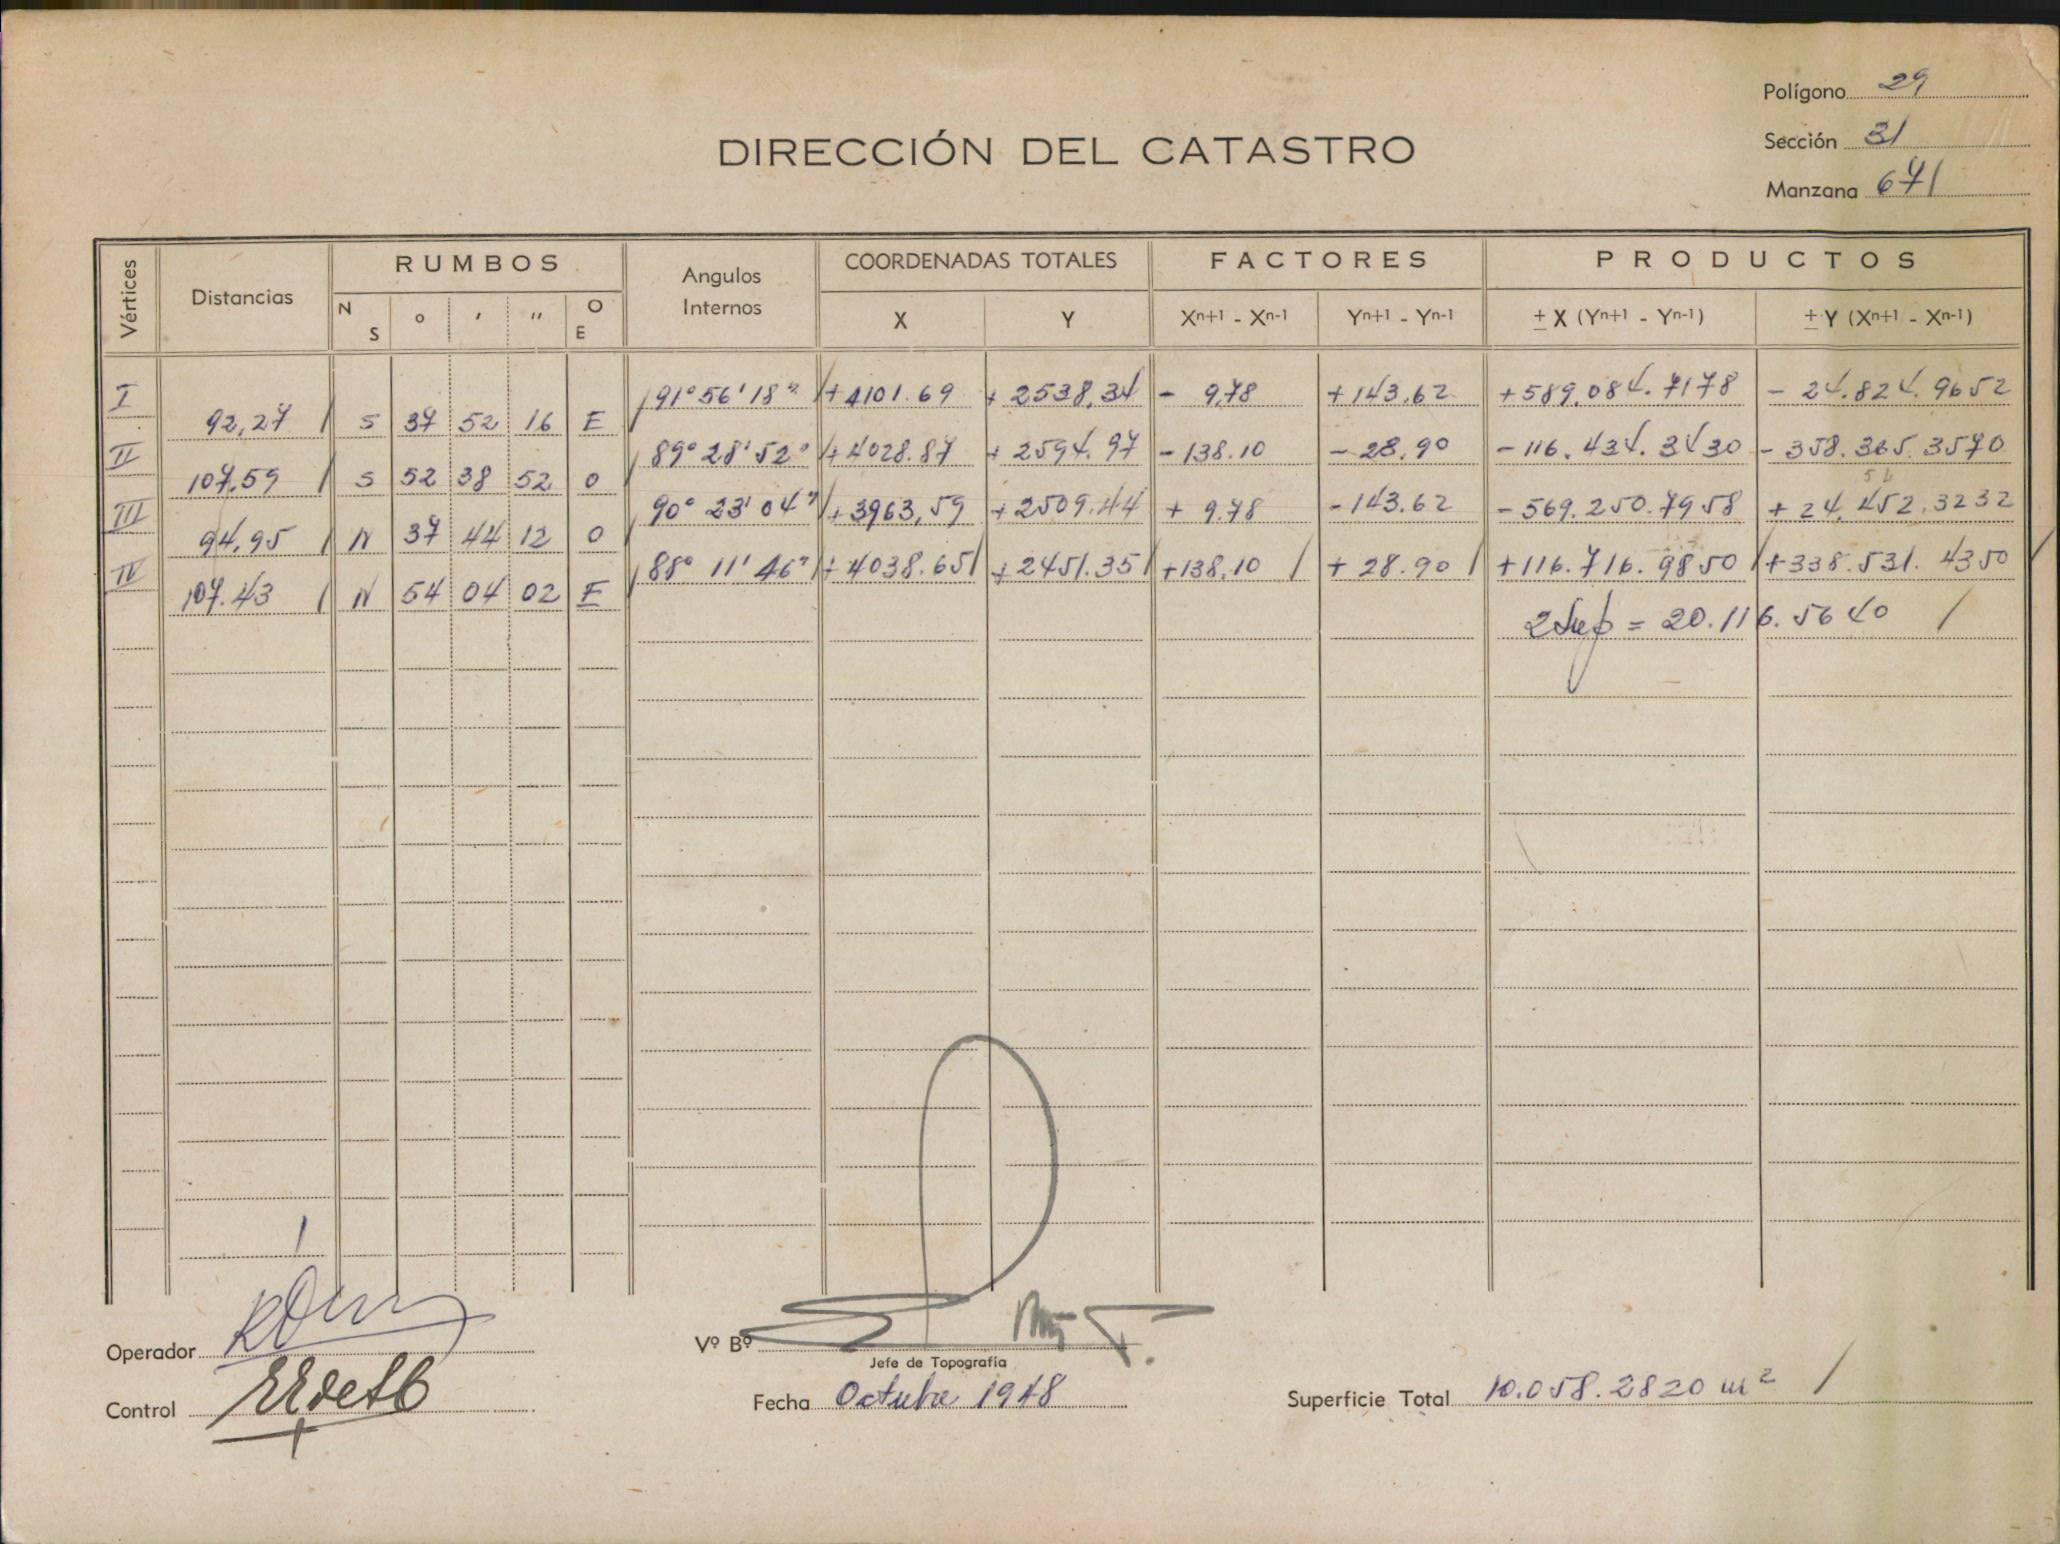 Polígono 29
DIRECCIÓN DEL CATASTRO
Sección 31
Manzana 671
Vértices Distancias RUMBOS Angulos Internos COORDENADAS TOTALES FACTORES PRODUCTOS
N S o ' '' O E X Y Xn+1 - Xn-1 Yn+1 - Yn-1 ± X (Yn+1 - Yn-1) ± Y (Xn+1 - Xn-1)
I 91° 56' 18" +4101.69 + 2538,34 - 9,78 +143,62 +589.084.7178 - 24.824.9652
92,27 S 37 52 16 E
II 89° 28' 52" +4028.87 + 2594.97 -138.10 - 28.90 -116.434.3430 - 358.365.3570
107.59 S 52 38 52 O
III 90° 23' 04" +3963,59 +2509.44 + 9.78 -143.62 -569.250.7958 + 24.452.3232
94,95 N 37 44 12 O
IV 88° 11' 46" + 4038.65 +2451.35 +138,10 + 28.90 +116.716.9850 +338.531.4350
107.43 N 54 04 02 E
2Sup = 20.116.5640
Operador
Vº Bº
Jefe de Topografía
Control
Fecha Octubre 1948
Superficie Total 10.058.2820 m²